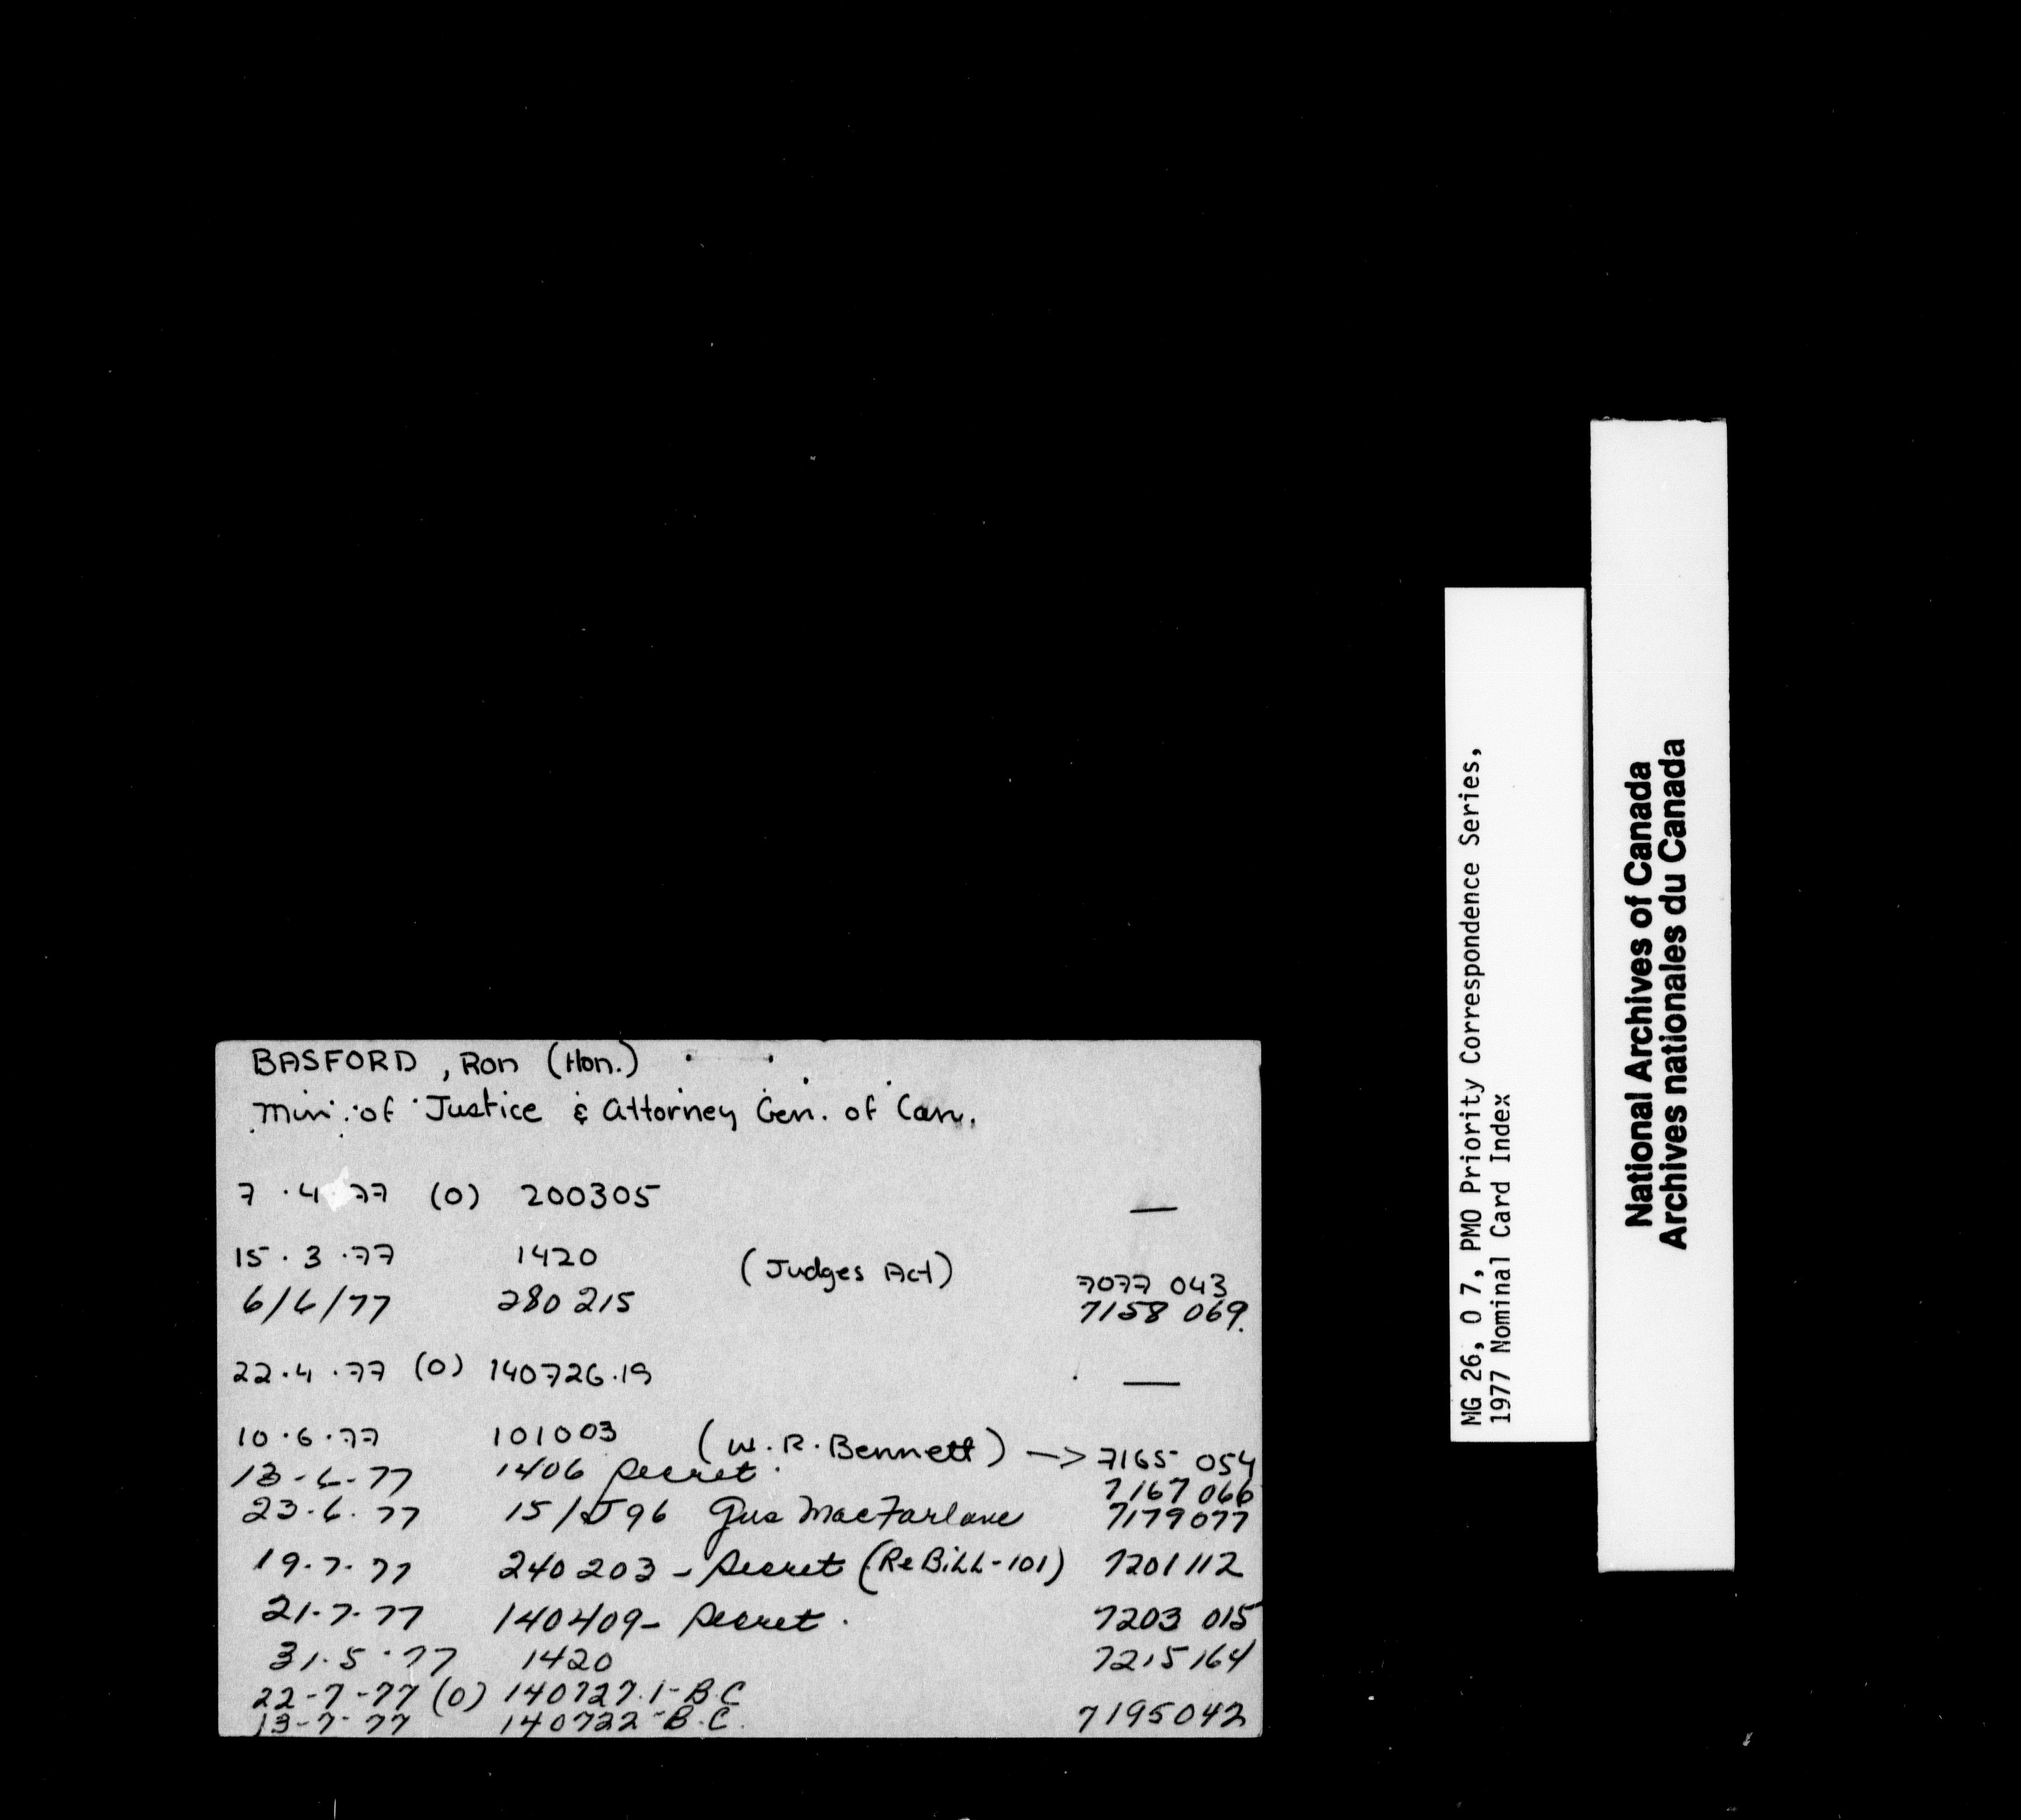 BASFORD, Ron (Hon.)
Min. of Justice & Attorney Gen. of Can.
7 . 4 . 77 (0) 200305 —
15 . 3 . 77 1420 (Judges Act) 7077 043
6/6/77 280 215 7158 069.
22 . 4 . 77 (0) 140726.19 —
10 . 6 . 77 101003 (W. R. Bennett) —> 7165 054
13-6-77 1406 Secret. 7167 066
23.6.77 15/J96 Gus MacFarlane 7179077
19.7.77 240 203 - Secret (Re BiLL-101) 7201 112
21-7-77 140409- Secret. 7203 015
31.5.77 1420 7215 164
22-7-77 (0) 140727.1-B.C
13-7-77 140722-B.C. 7195042
MG 26, O 7, PMO Priority Correspondence Series,
1977 Nominal Card Index
National Archives of Canada
Archives nationales du Canada